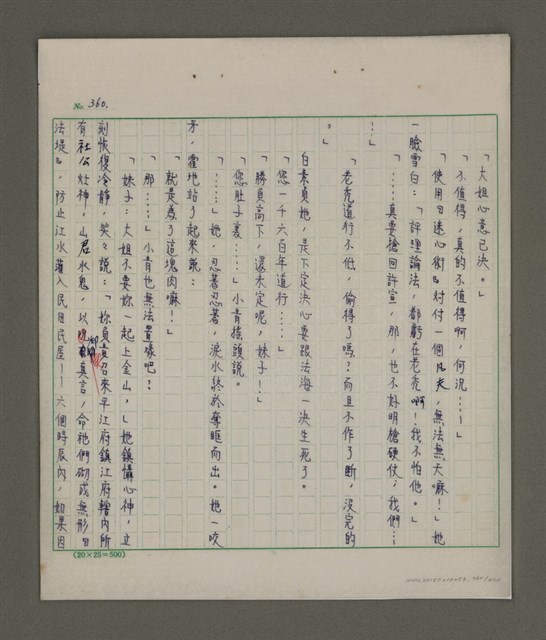 No. 360.
「大姐心意已決。」
「不值得，真的不值得啊，何況……」
「使用『迷心術』対付一個凡夫，無法無天嘛！」她
一臉雪白：「評理論法，都虧在老禿啊！我不怕他。」
「……真要搶回許宣，那，也不好明槍硬仗；我們…
…」
「老禿道行不低，偷得了嗎？而且不作了断，沒完的
。」
白素貞她，是下定決心要跟法海一決生死了。
「您一千六百年道行……」
「勝負高下，還未定呢，妹子！」
「您肚子裏……」小青搖頭說。
「……」她，忍著忍著，淚水終於奪眶而出。她一咬
牙，霍地站了起來說：
「就是為了這塊肉嘛！」
「那……」小青也無法置喙吧？
「妹子：大姐不要妳一起上金山，」她鎮懾心神，立
刻恢復冷靜，笑々說：「妳負責召來平江府鎮江府轄內所
有社公灶神，山君水鬼，以真言，命祂們砌成無形『
法堤』，防止江水灌入民田民屋——六個時辰內，如果因
(20×25=500)